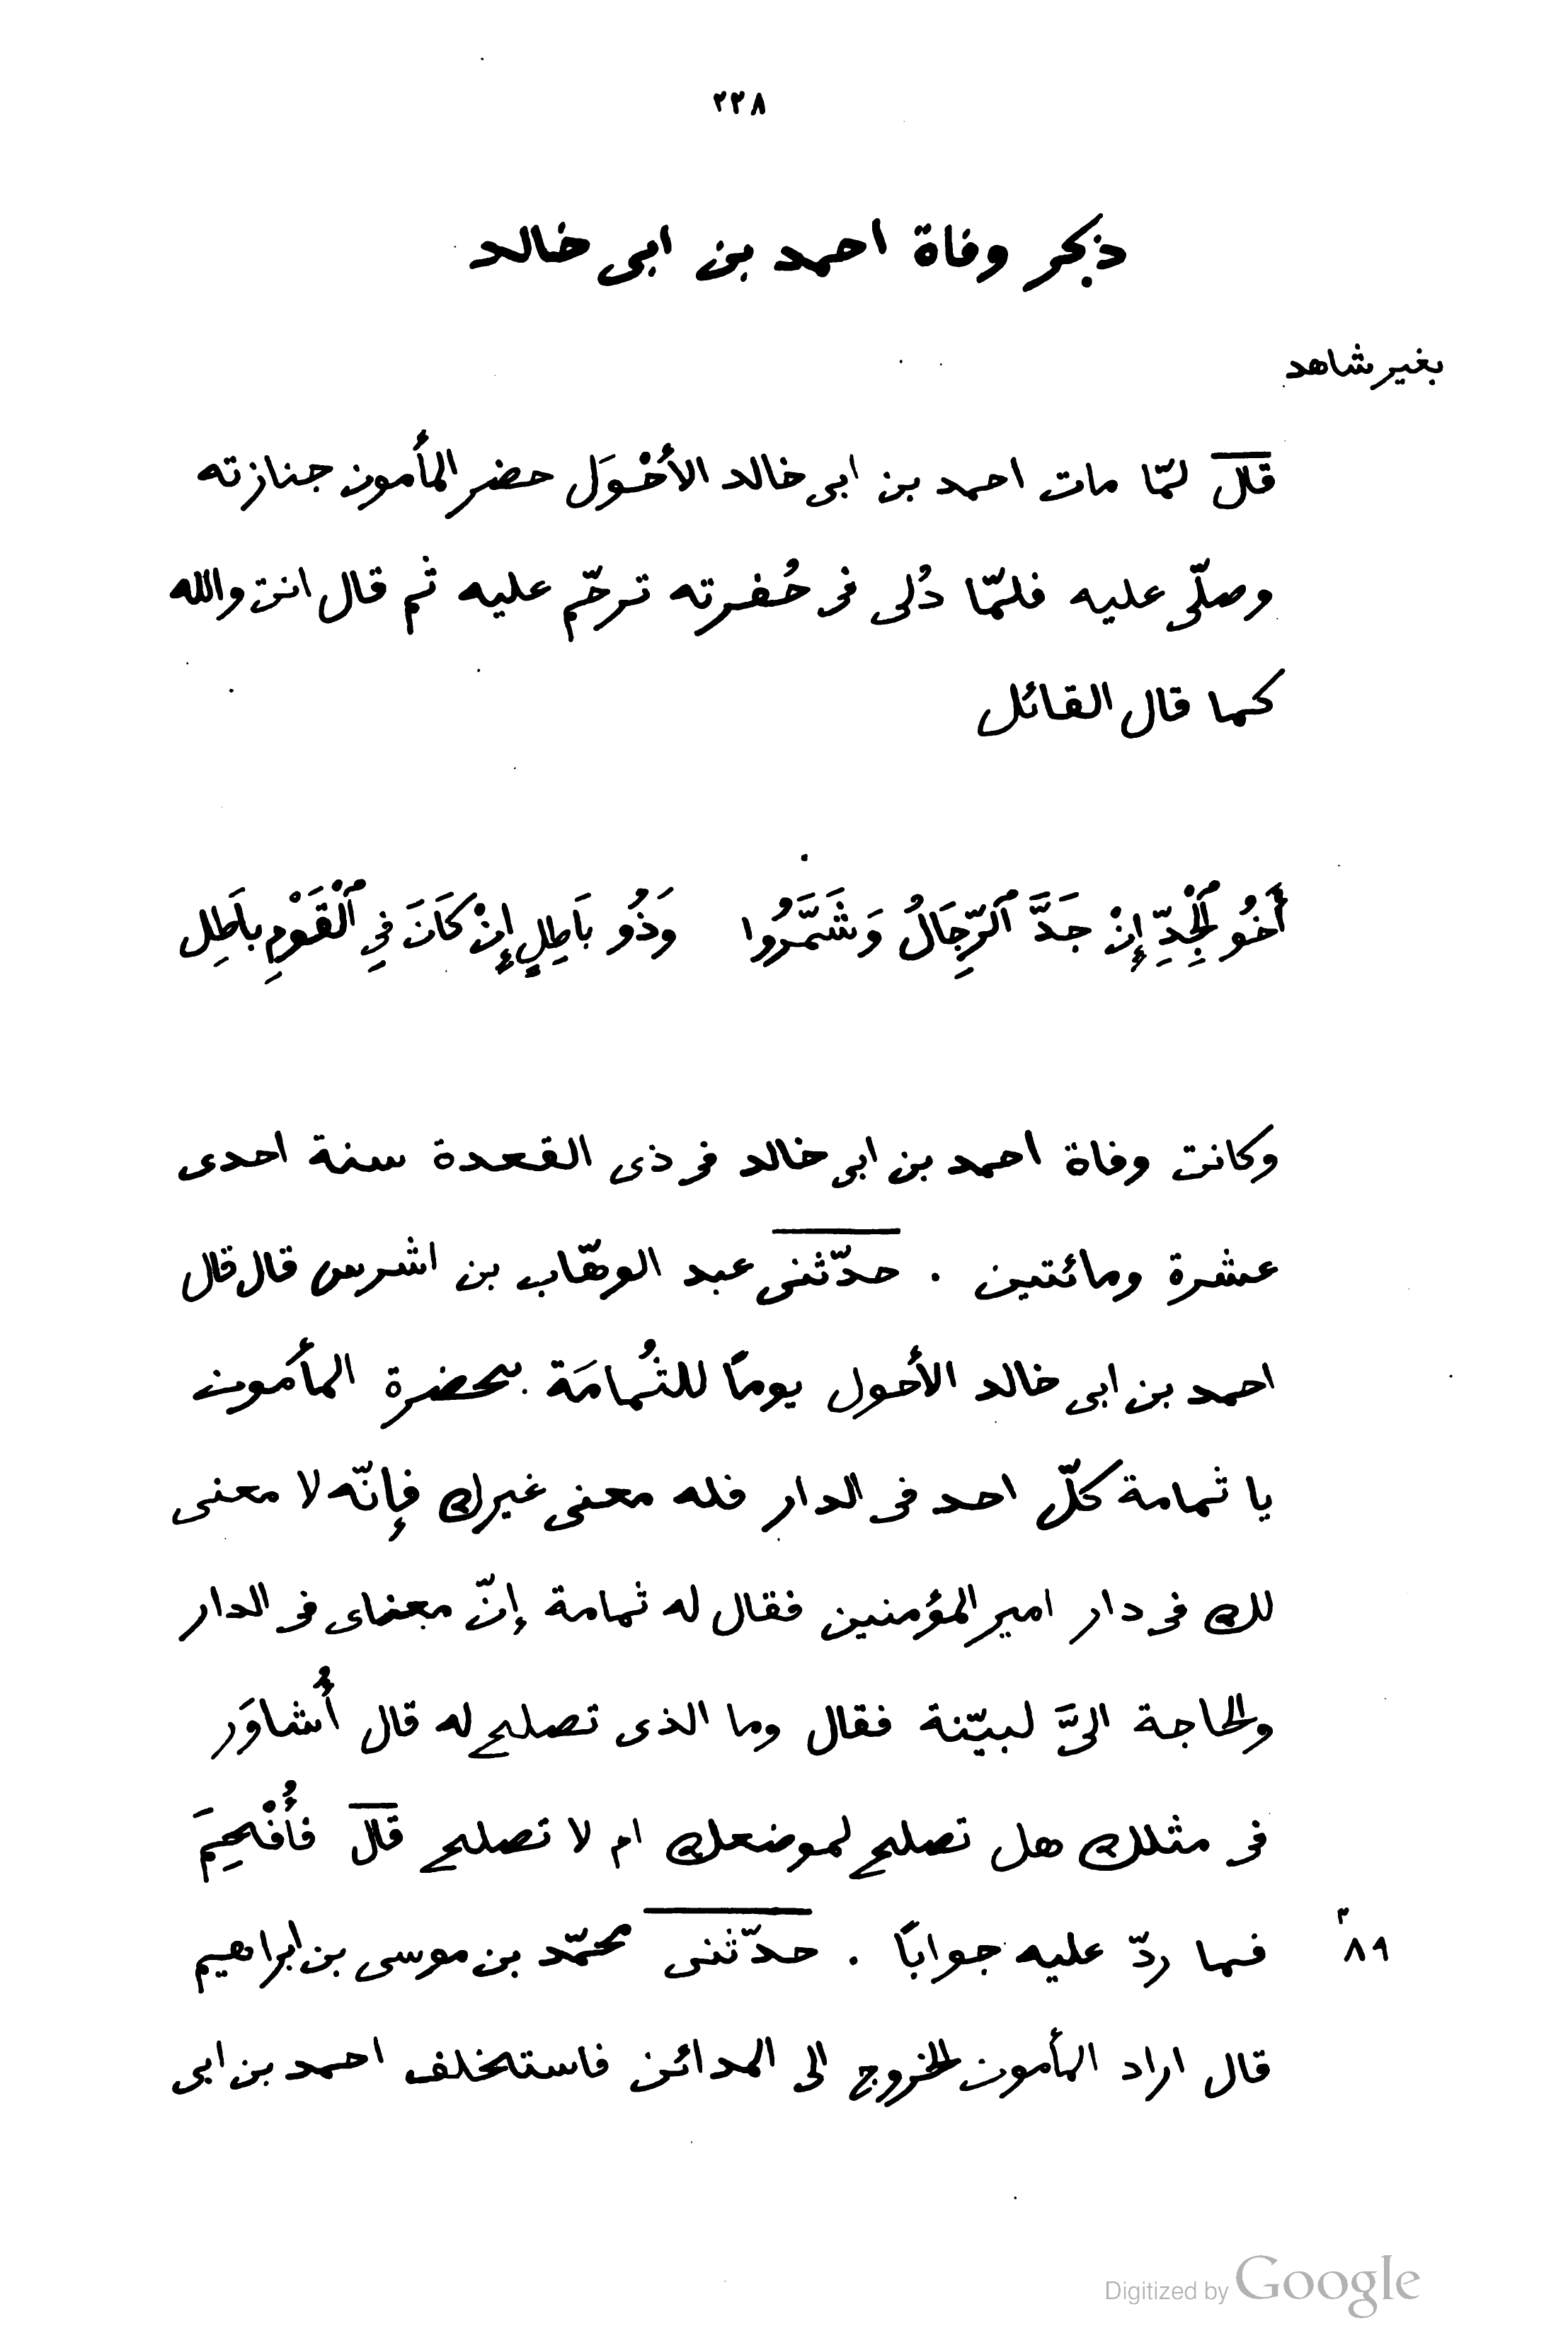 ٢٢٨
ذكر وفاة احمد بن ابى خالد
بغير شاهد
قال لمّا مات احمد بن ابى خالد الأحْوَل حضر المأمون جنازته
وصلّى عليه فلمّا دُلى فى حُفرته ترحّم عليه ثم قال انت والله
كما قال القائل
أَخُو ٱلْجِدِّ إِنْ جَدَّ ٱلرِّجَالُ وَشَمَّرُوا وَذُو بَاطِلٍ إِنْ كَانَ فِي ٱلْقَوْمِ بَاطِل
وكانت وفاة احمد بن ابى خالد فى ذى القعدة سنة احدى
عشرة ومائتين . حدّثنى عبد الوهّاب بن اشرس قال قال
احمد بن ابى خالد الأحول يومًا للثُمامَة بحضرة المأمون
يا ثمامة كلّ احد فى الدار فله معنى غيرك فإنّه لا معنى
لك فى دار امير المؤمنين فقال له ثمامة إنّ معناى فى الدار
والحاجة الىَّ لبيّنة فقال وما الذى تصلح له قال أُشاوَر
فى مثلك هل تصلح لموضعك ام لا تصلح قال فأُفْحِمَ
فما ردّ عليه جوابًا . حدّثنى محمّد بن موسى بن ابراهيم
٨٩
قال اراد المأمون الخروج الى المدائن فاستخلف احمد بن ابى
Digitized by Google